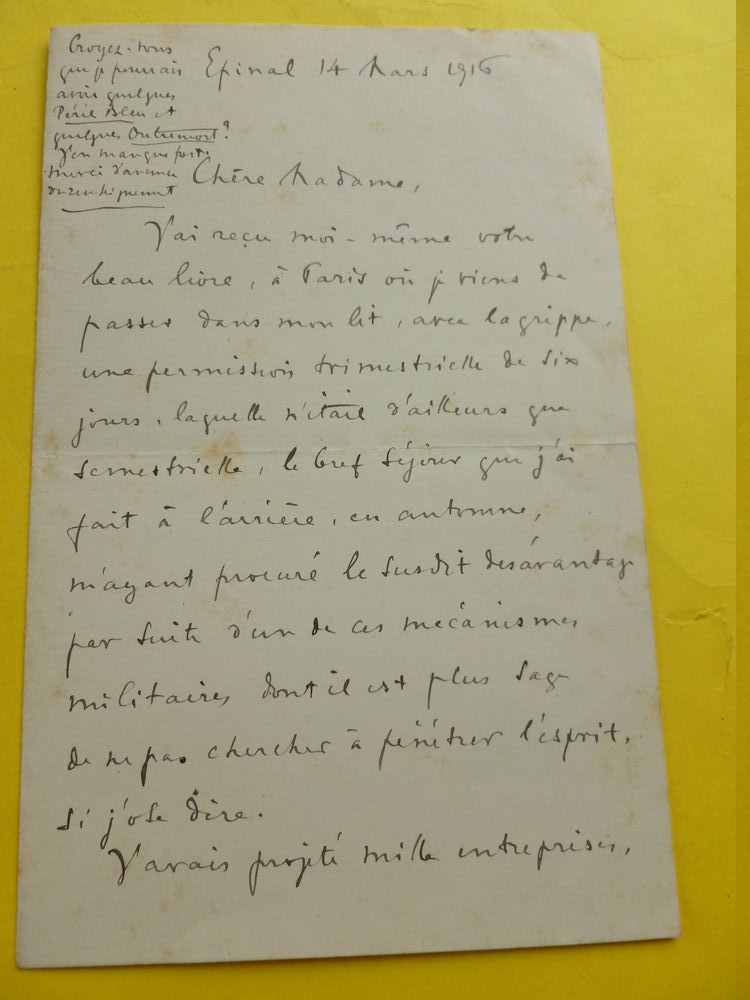 Croyez-vous
que je pourrais
avoir quelques
Péril Bleu et
quelques Outremort?
J'en manque fort.
merci d'avance
du renseignement
Epinal 14 Mars 1916
Chère Madame,
J'ai reçu moi-même votre
beau livre, à Paris où je viens de
passer dans mon lit, avec la grippe,
une permission trimestrielle de six
jours, laquelle n'était d'ailleurs que
semestrielle, le bref séjour que j'ai
fait à l'arrière, en automne,
m'ayant procuré le susdit désavantage
par suite d'un de ces mécanismes
militaires dont il est plus sage
de ne pas chercher à pénétrer l'esprit,
si j'ose dire.
J'avais projeté mille entreprises,